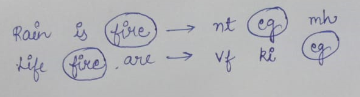 Rain is fire → nt eg mh
Life fire are → vf ki eg